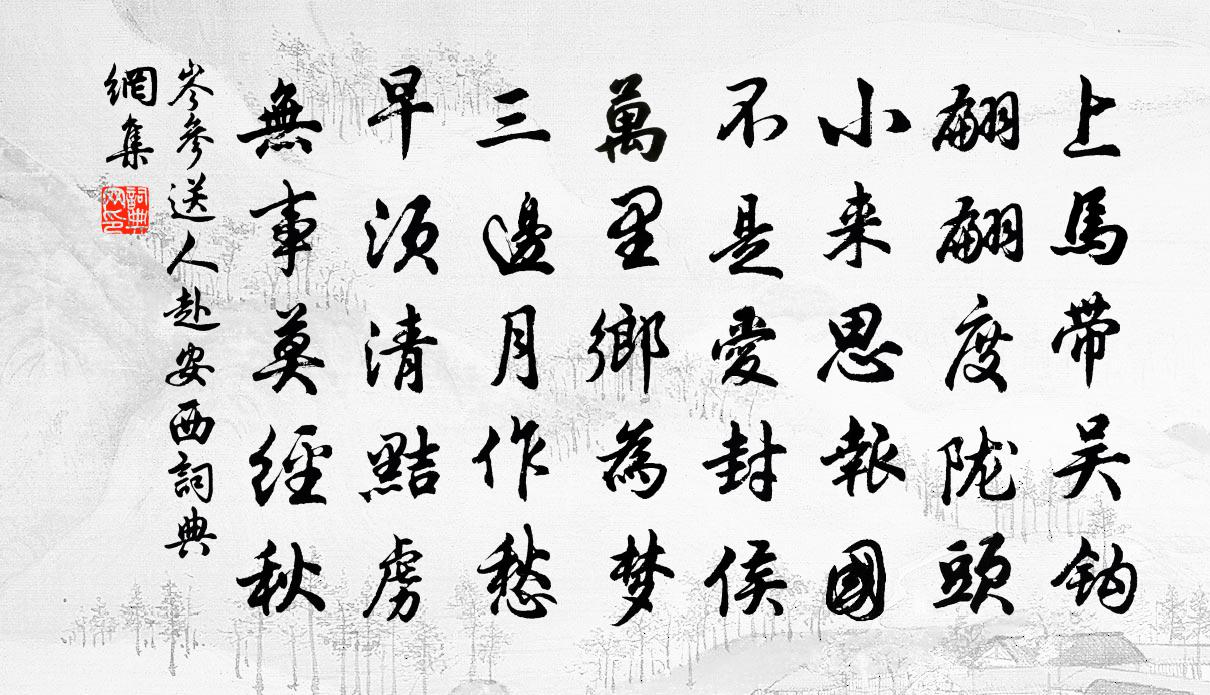 上馬带吴钩
翩翩度陇頭
小来思報國
不是愛封侯
萬里鄉為梦
三邊月作愁
早须清黠虏
無事莫經秋
岑參送人赴安西詞典
網集
詞典网印